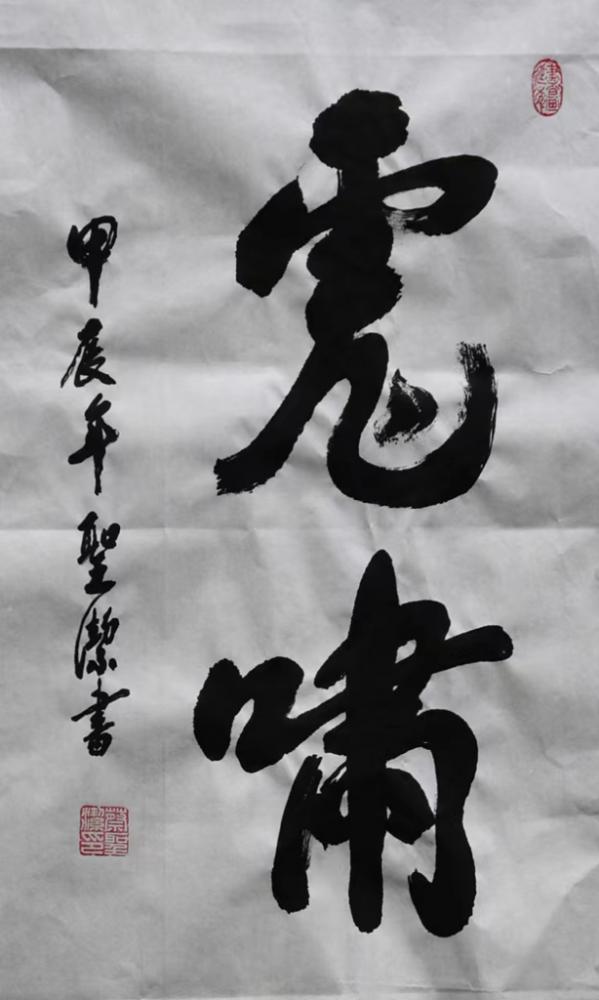 虎啸
甲辰年聖潔書